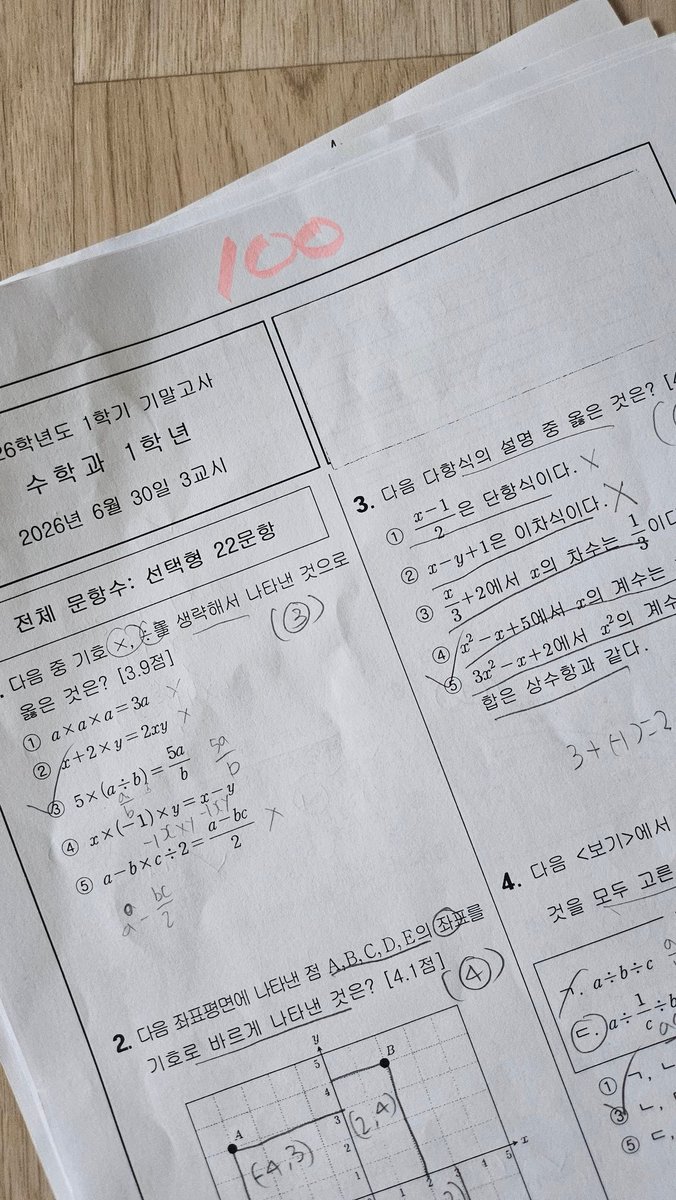 100
26학년도 1학기 기말고사
수학과 1학년
2026년 6월 30일 3교시
전체 문항수: 선택형 22문항
다음 중 기호 ×, ÷를 생략해서 나타낸 것으로
옳은 것은? [3.9점]
(③)
① a×a×a=3a ×
② x+2×y=2xy ×
③ 5×(a÷b)=5a/b
5a/b
a/b
④ x×(-1)×y=x-y
⑤ a-b×c÷2=(a-bc)/2 ×
a-bc/2
2. 다음 좌표평면에 나타낸 점 A,B,C,D,E의 좌표를
기호로 바르게 나타낸 것은? [4.1점]
(④)
y
5
B
4
3
A
2
1
(-4,3)
(2,4)
1 2 3 4 5 x
3. 다음 다항식의 설명 중 옳은 것은?
① (x-1)/2은 단항식이다. ×
② x-y+1은 이차식이다. ×
③ x/3+2에서 x의 차수는 1/3이다
④ x²-x+5에서 x의 계수는
⑤ 3x²-x+2에서 x²의 계수
합은 상수항과 같다.
3+(-1)=2
4. 다음 <보기>에서
것을 모두 고른
ㄱ. a÷b÷c
ㄷ. a÷1/c÷b
① ㄱ, ㄴ
③ ㄴ,
⑤ ㄷ,